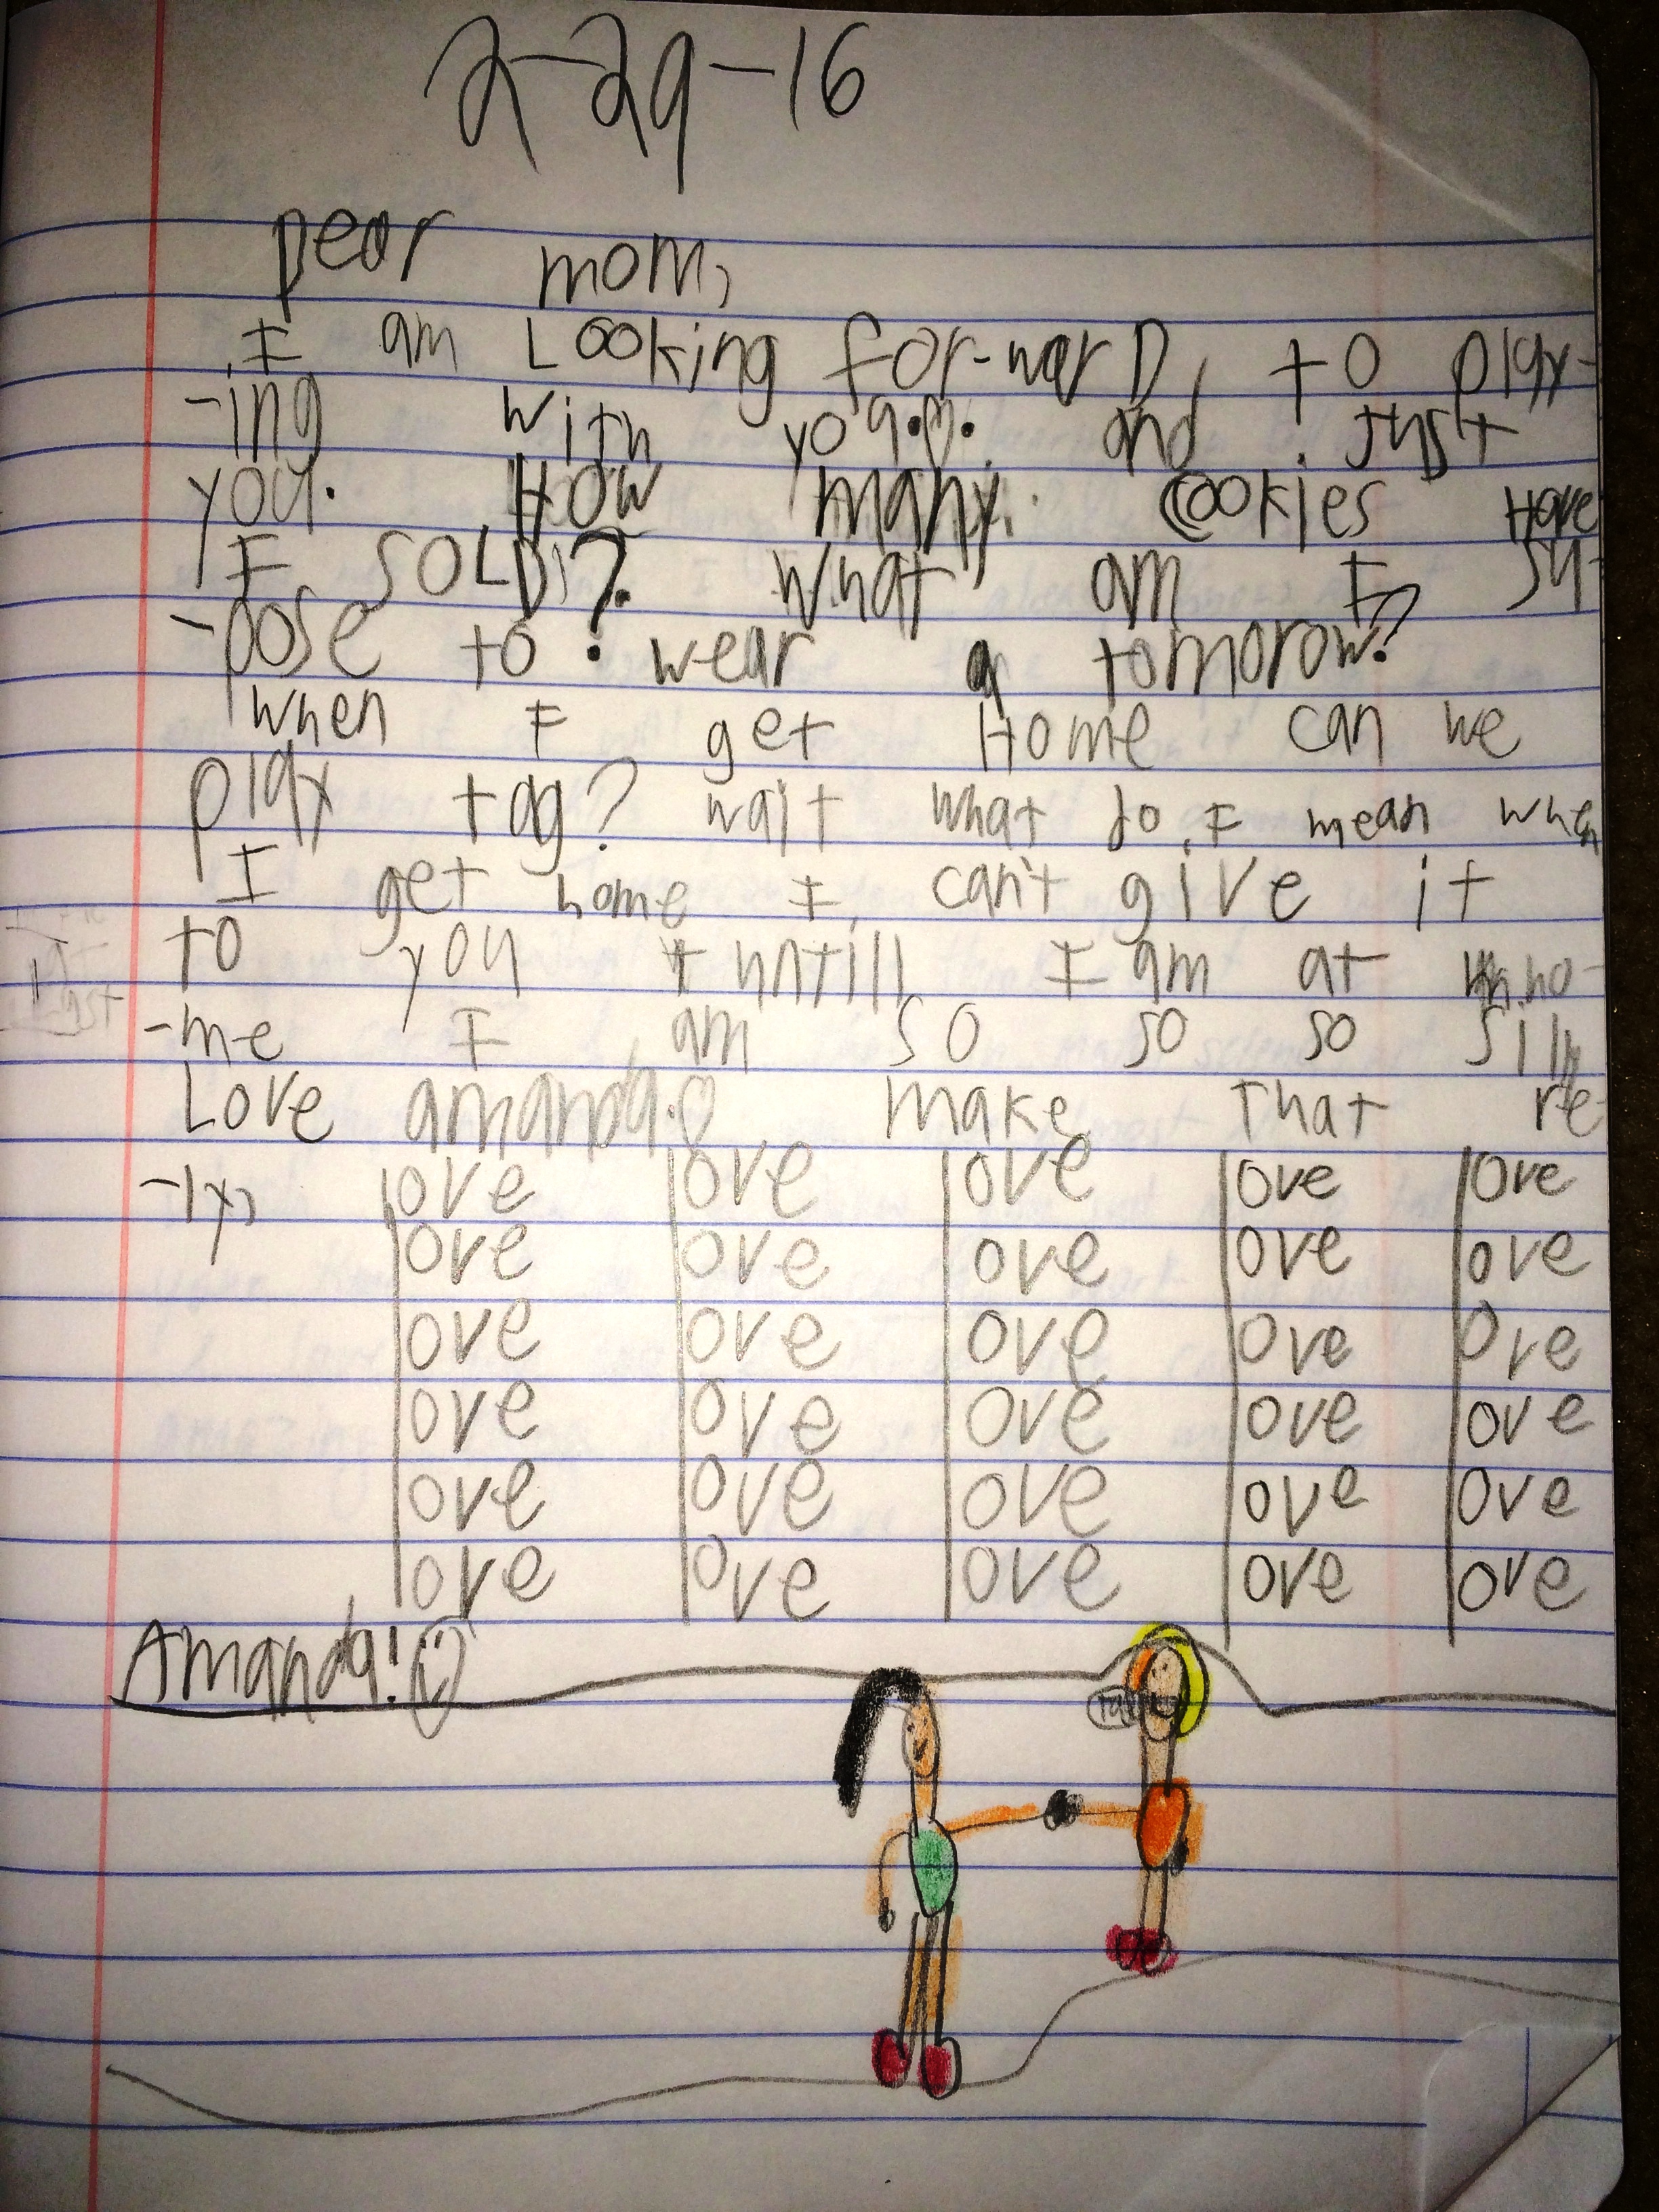 2-29-16
Dear mom,
I am Looking for-warD, to play-
-ing with you. and Just
you. How many cookies Have
I SOLD? What am I su-
-pose to? wear a tomorow?
when I get Home can we
play tag? wait what do I mean when
I get home I can't give it
to you untill I am at ho-
-me I am so so so silly
Love amanda. make That re-
-ly, love love love love love
love love love love love
love love love love love
love love love love love
love love love love love
love love love love love
Amanda!